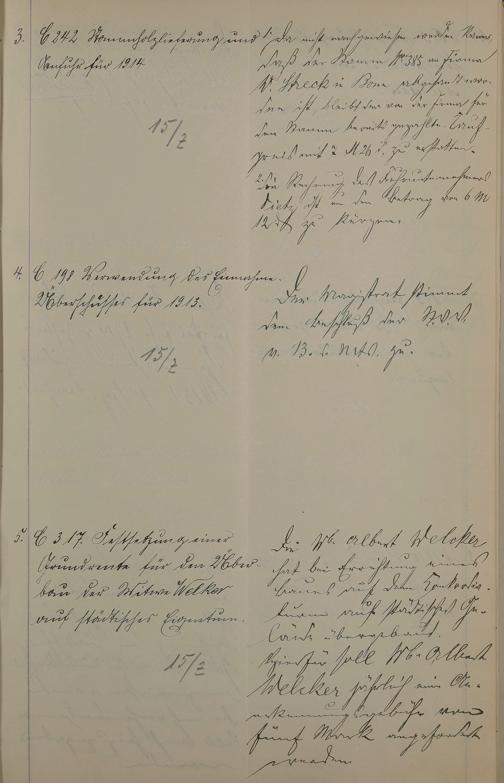 3. C 242 Stammholzlieferung und
Anfuhr für 1914.
15/7
1. Da nicht nachgewiesen werden kann,
daß der Stamm № 385 an Firma
W. Streck in Bonn abgefahren wor-
den ist, bleibt der von der Firma für
den Stamm bereits gezahlte Kauf-
preis mit M 26 zu erstatten.
2. Die Rechnung des Fuhrunternehmers
Dietz ist um den Betrag von 6 M
12 zu kürzen.
4. C 198 Verwendung des Einnahme-
Überschusses für 1913.
15/7
Der Magistrat stimmt
dem Beschluß der St.V.V.
v. 13. d. Mts. zu.
5. C 317. Festsetzung einer
Grundrente für den Über-
bau der Witwe Welker
auf städtisches Eigentum.
15/7
Die Wb. Albert Welcker
hat bei Errichtung eines
Baues auf dem
turm auf städtisches Ge-
lände übergebaut.
Hierfür soll Wb. Albert
Welcker jährlich eine An-
erkennungsgebühr von
fünf Mark angefordert
werden.